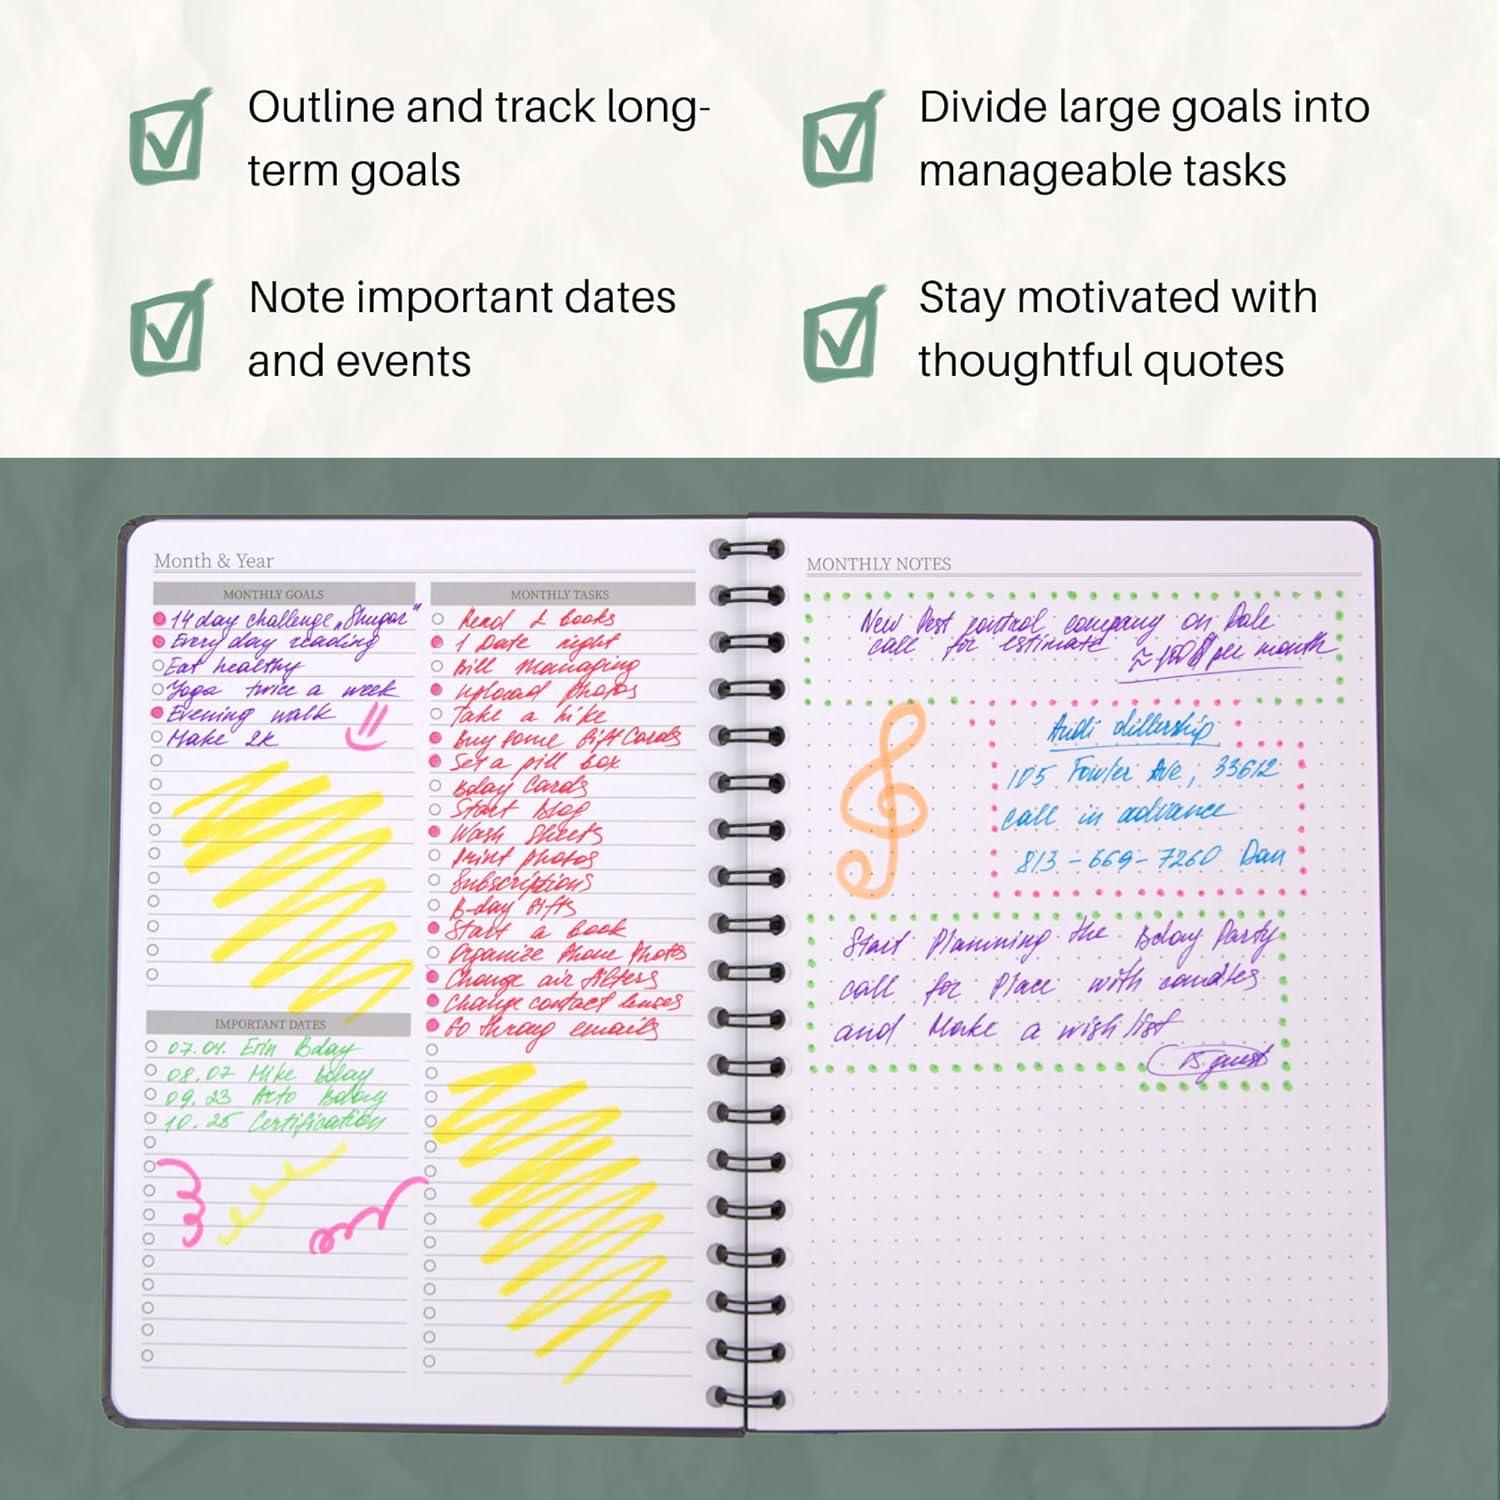 Outline and track long-
term goals
Divide large goals into
manageable tasks
Note important dates
and events
Stay motivated with
thoughtful quotes
Month & Year
MONTHLY GOALS
14 day challenge „Shugar"
Every day reading
Eat healthy
Yoga twice a week
Evening walk
Make 2k
IMPORTANT DATES
07.04. Erin Bday
08.07 Mike Bday
09.23 Arto Bday
10.25 Certification
MONTHLY TASKS
Read 2 books
1 Date night
Bill Managing
Upload photos
Take a hike
Buy some Gift Cards
Set a pill box
Bday Cards
Start Blog
Wash Sheets
Print photos
Subscriptions
B-day Gifts
Start a Book
Organize Phone Photos
Change air filters
Change contact lenses
Go throug emails
MONTHLY NOTES
New Pest control company on Dale
call for estimate
per month
Audi dillership
105 Fowler Ave, 33612
call in advance
813-669-7260 Dan
Start Planning the Bday Party
call for Place with candles
and Make a wish list
guest